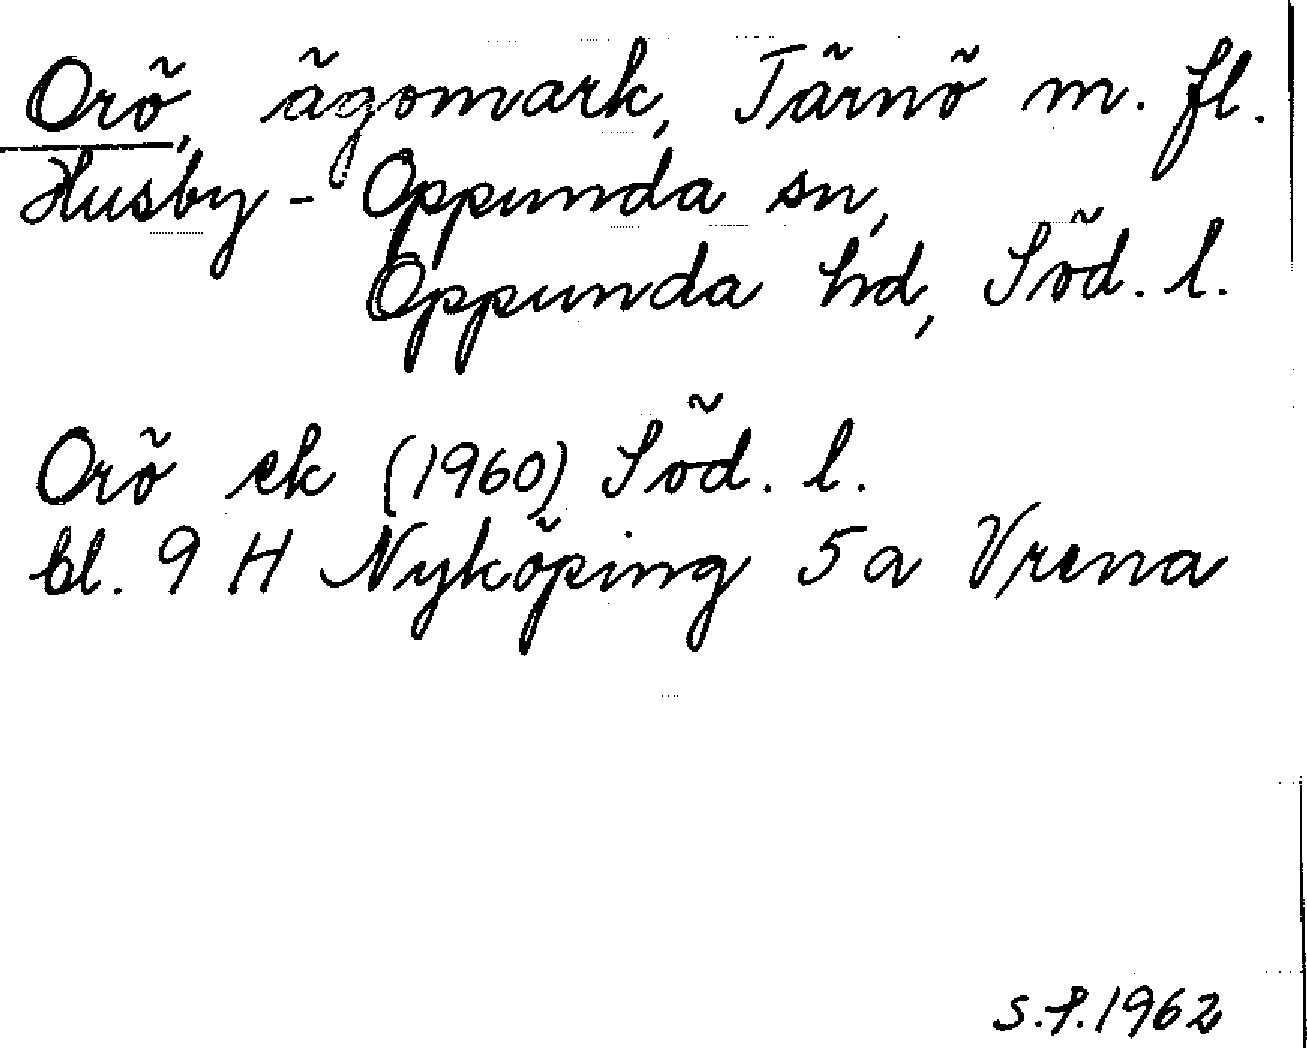 Orö, ägomark, Tärnö m. fl.
Husby-Oppunda sn,
Oppunda hd, Söd. l.
Orö ek (1960) Söd. l.
bl. 9 H Nyköping 5a Vrena
S.P.1962